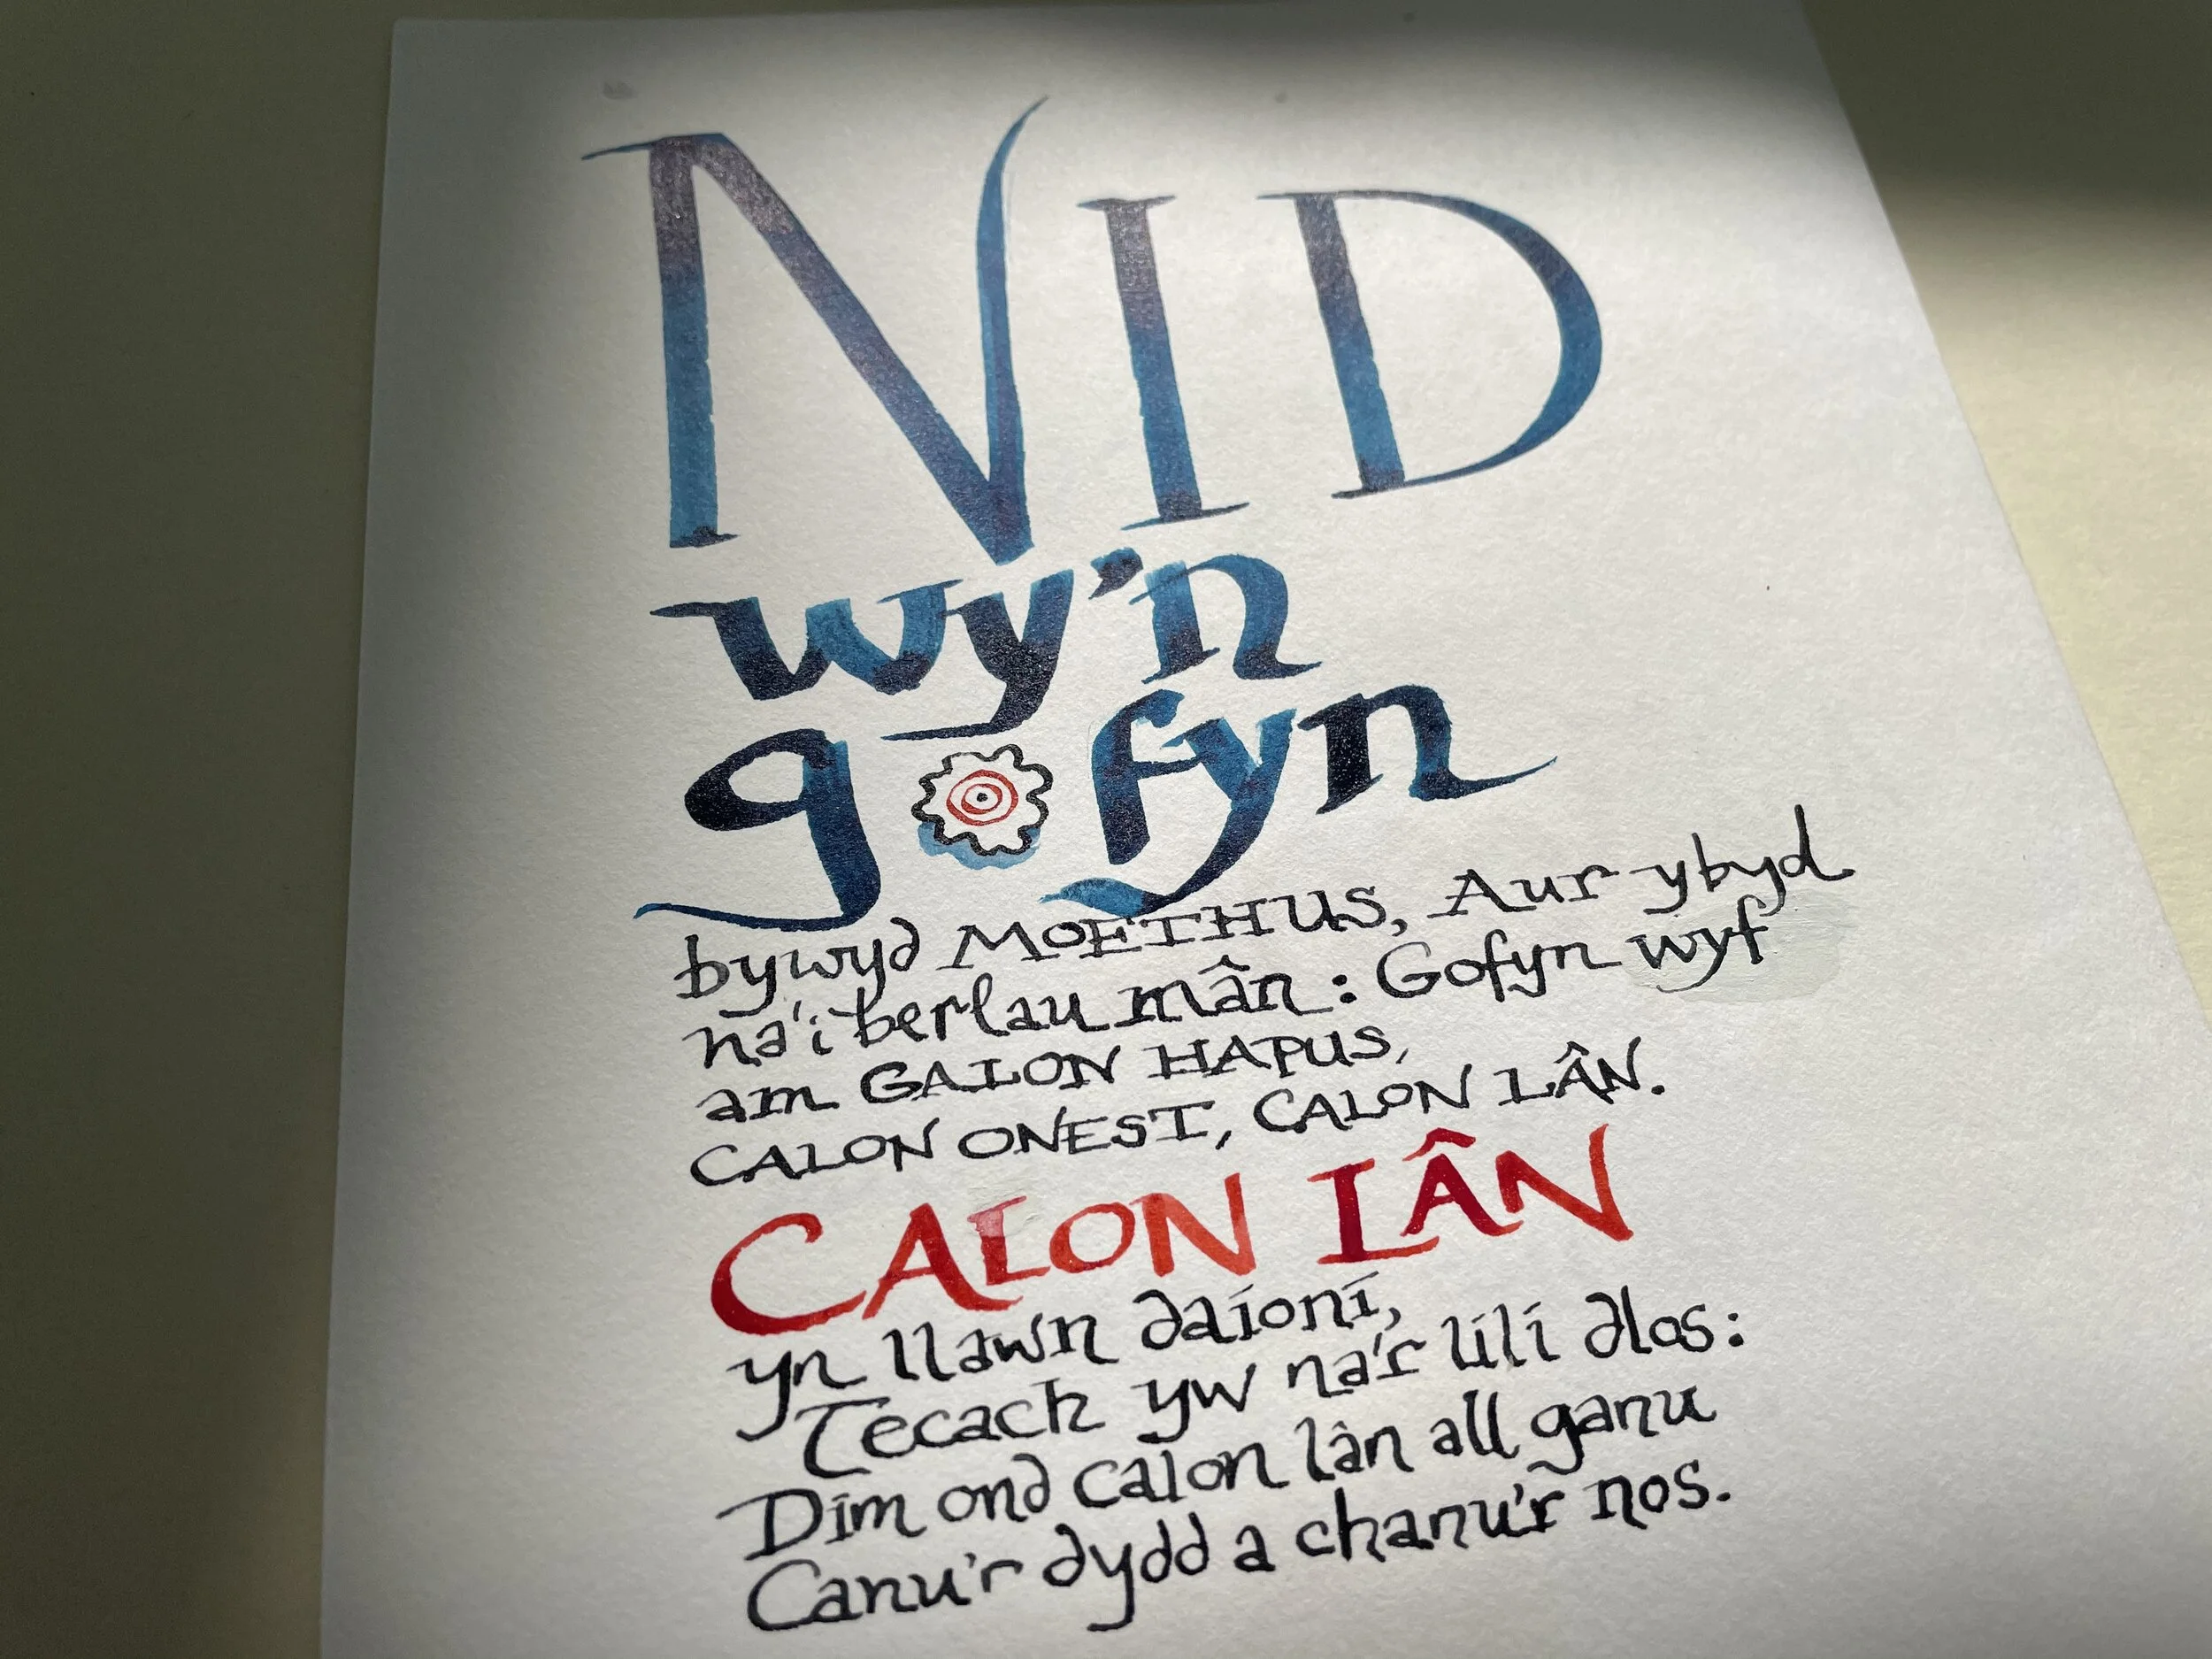 NID
wy'n
gofyn
bywyd MOETHUS, Aur y byd
na'i berlau mân: Gofyn wyf
am GALON HAPUS,
CALON ONEST, CALON LÂN.
CALON LÂN
yn llawn daioni,
Tecach yw na'r lili dlos:
Dim ond calon lân all ganu
Canu'r dydd a chanu'r nos.